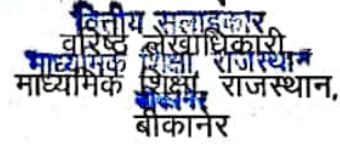 वित्तीय सलाहकार
वरिष्ठ लेखाधिकारी
माध्यमिक शिक्षा राजस्थान
माध्यमिक शिक्षा राजस्थान,
बीकानेर
बीकानेर